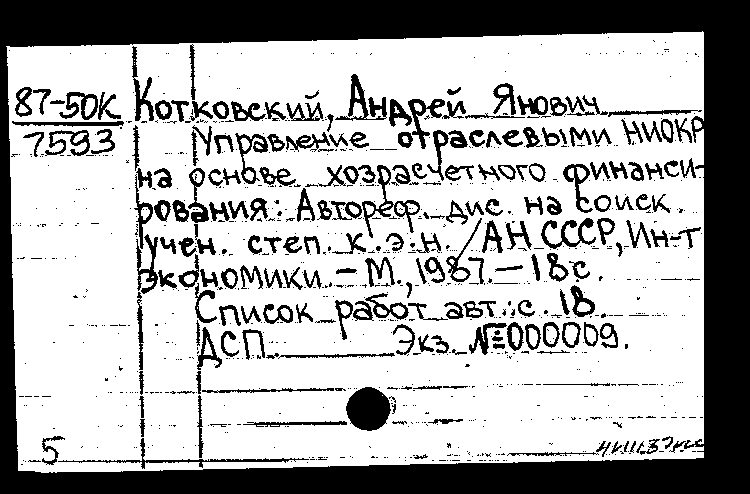 87-50К Котковский, Андрей Янович
7593 Управление отраслевыми НИОКР
на основе хозрасчетного финанси-
рования: Автореф. дис. на соиск.
учен. степ. к.э.н. / АН СССР, Ин-т
экономики. – М., 1987. – 18 с.
Список работ авт.: с. 18.
ДСП. Экз. №000009.
5